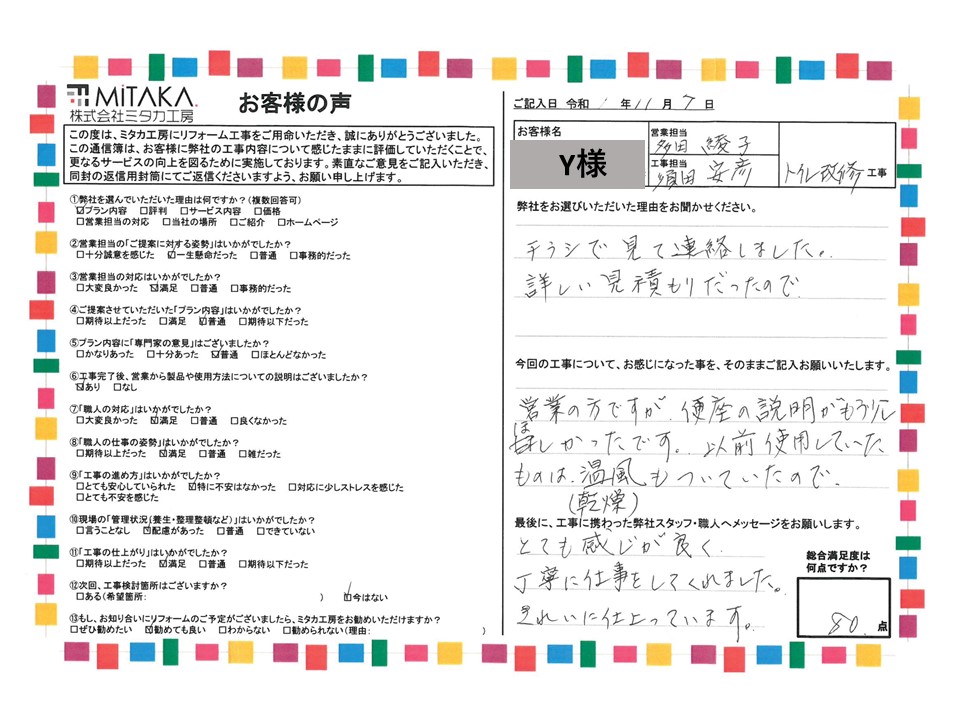 MiTAKA.
株式会社ミタカ工房
お客様の声
この度は、ミタカ工房にリフォーム工事をご用命いただき、誠にありがとうございました。
この通信簿は、お客様に弊社の工事内容について感じたままに評価していただくことで、
更なるサービスの向上を図るために実施しております。素直なご意見をご記入いただき、
同封の返信用封筒にてご返信くださいますよう、お願い申し上げます。
①弊社を選んでいただいた理由は何ですか？(複数回答可)
☑プラン内容 □評判 □サービス内容 □価格
□営業担当の対応 □当社の場所 □ご紹介 □ホームページ
②営業担当の「ご提案に対する姿勢」はいかがでしたか？
□十分誠意を感じた ☑一生懸命だった □普通 □事務的だった
③営業担当の対応はいかがでしたか？
□大変良かった ☑満足 □普通 □事務的だった
④ご提案させていただいた「プラン内容」はいかがでしたか？
□期待以上だった □満足 ☑普通 □期待以下だった
⑤プラン内容に「専門家の意見」はございましたか？
□かなりあった □十分あった ☑普通 □ほとんどなかった
⑥工事完了後、営業から製品や使用方法についての説明はございましたか？
☑あり □なし
⑦「職人の対応」はいかがでしたか？
□大変良かった ☑満足 □普通 □良くなかった
⑧「職人の仕事の姿勢」はいかがでしたか？
□期待以上だった ☑満足 □普通 □雑だった
⑨「工事の進め方」はいかがでしたか？
□とても安心していられた ☑特に不安はなかった □対応に少しストレスを感じた
□とても不安を感じた
⑩現場の「管理状況(養生・整理整頓など)」はいかがでしたか？
□言うことなし ☑配慮があった □普通 □できていない
⑪「工事の仕上がり」はいかがでしたか？
□期待以上だった ☑満足 □普通 □期待以下だった
⑫次回、工事検討箇所はございますか？
□ある(希望箇所: ) ☑今はない
⑬もし、お知り合いにリフォームのご予定がございましたら、ミタカ工房をお勧めいただけますか？
□ぜひ勧めたい ☑勧めても良い □わからない □勧められない(理由: )
ご記入日 令和 1 年 11 月 7 日
お客様名
Y様
営業担当
多田 綾子
工事担当
須田 安彦
トイレ改修 工事
弊社をお選びいただいた理由をお聞かせください。
チラシで見て連絡しました。
詳しい見積もりだったので
今回の工事について、お感じになった事を、そのままご記入お願いいたします。
営業の方ですが、便座の説明がもう少し
ほしかったです。以前使用していた
ものは、温風もついていたので、
(乾燥)
最後に、工事に携わった弊社スタッフ・職人へメッセージをお願いします。
とても感じが良く、
丁寧に仕事をしてくれました。
きれいに仕上っています。
総合満足度は
何点ですか？
80. 点